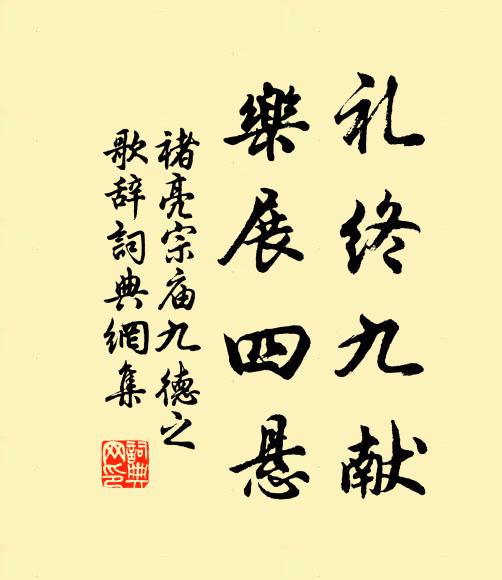 礼终九献
樂展四悬
褚亮宗庙九德之
歌辞詞典網集
詞典
网印